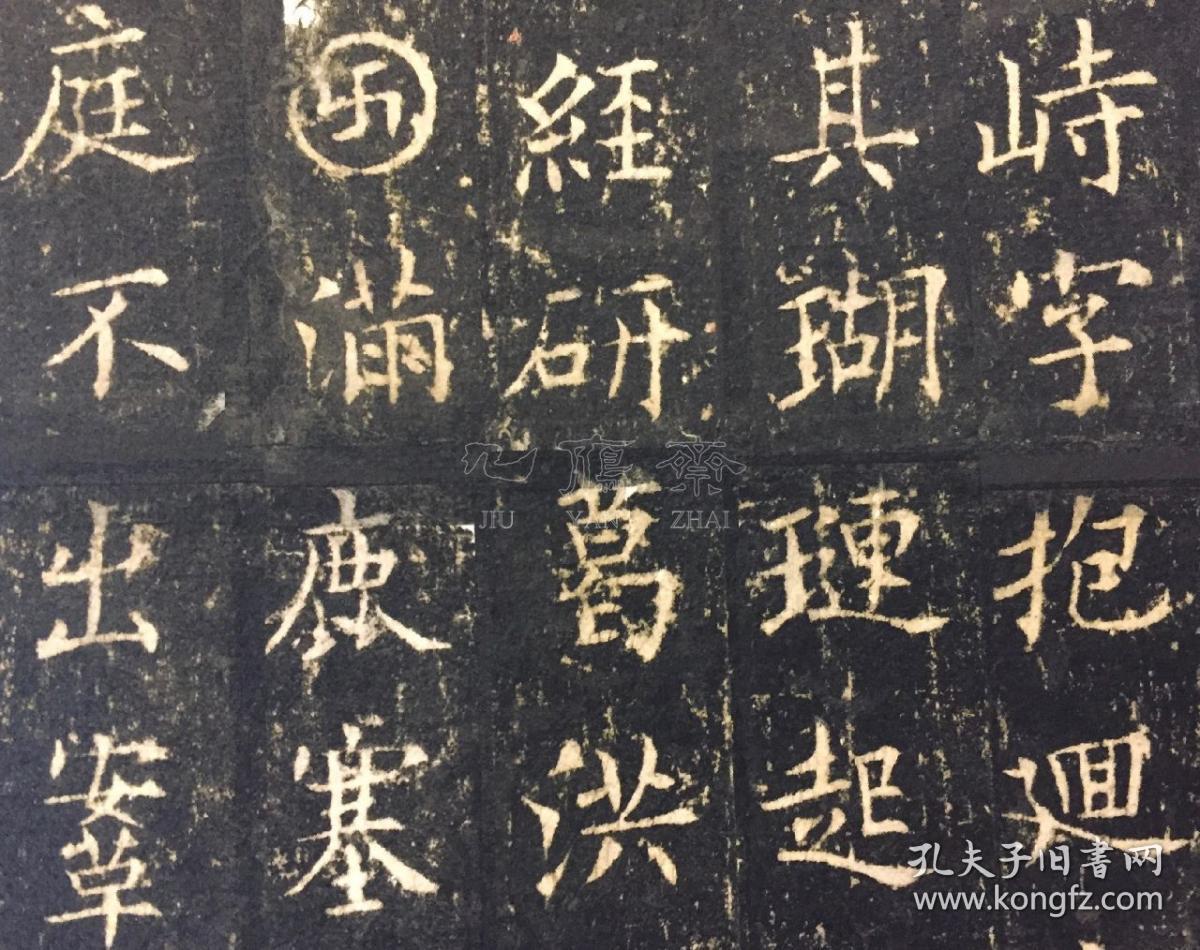 峙字抱廻
其瑚璉起
經研葛洪
卐滿鹿塞
庭不出安草
九雁齋
JIU YAN ZHAI
孔夫子旧書网
www.kongfz.com